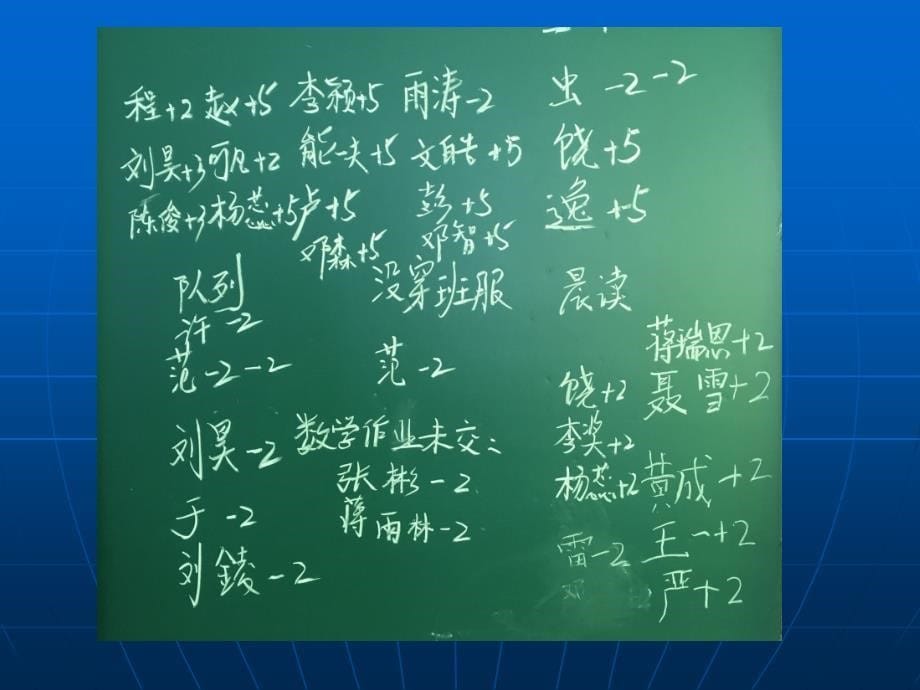 程+2 赵+5 李颖+5 雨涛-2 虫-2-2
刘昊+3 +2 能一夫+5 文皓+5 饶+5
陈俊+3 杨蕊+5 卢+5 彭+5 逸+5
邓森+5 邓智+5
队列 没穿班服 晨读
许-2 蒋瑞恩+2
范-2-2 范-2 饶+2 聂雪+2
刘昊-2 数学作业未交: 李奖+2
张彬-2 杨蕊+2 黄成+2
于-2 蒋雨林-2 雷-2 王一+2
刘錂-2 邓 严+2